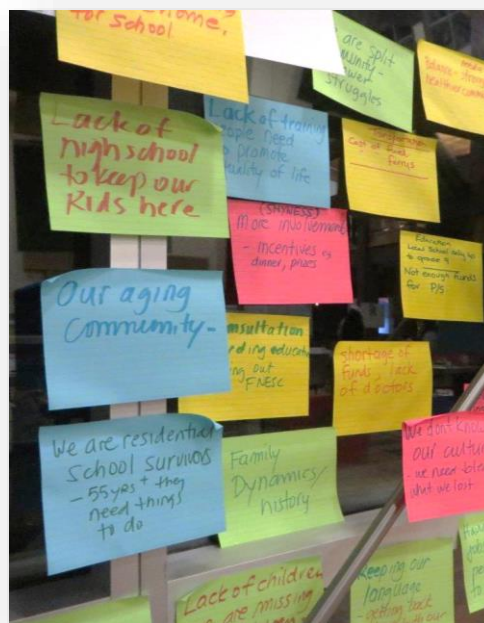 for School
are split
struggles
Lack of
high school
to keep our
Kids here
Lack of training
people need
to promote
quality of life
Transportation
Cost of travel
ferrys
(SHYNESS)
More involvement
- incentives
dinner, prizes
Education
Local School only up
to grade
Not enough funds
for P/S.
Our aging
Community -
onsultation
ding educa
ing out
FNESC
shortage of
funds, lack
of doctors
We are residential
School Survivors
- 55yrs + they
need things
to do
Family
Dynamics/
history
We don't know
our cultur
- we need
what we lost
Lack of children
are missing
Keeping our
language
- getting back